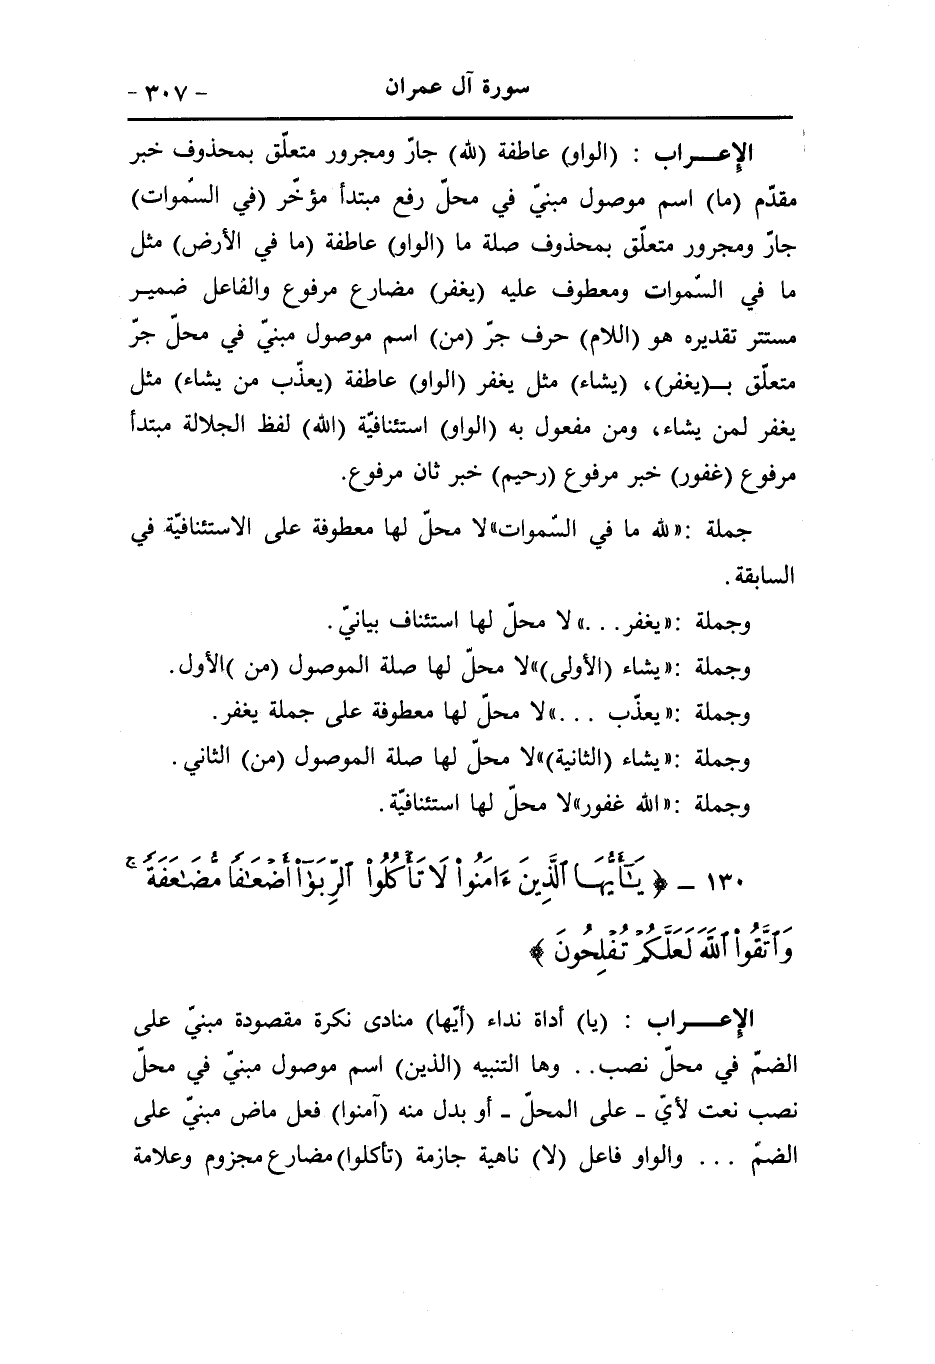 سورة آل عمران - ٣٠٧ -
الإعـــراب : (الواو) عاطفة (لله) جارّ ومجرور متعلّق بمحذوف خبر
مقدّم (ما) اسم موصول مبنيّ في محلّ رفع مبتدأ مؤخّر (في السّموات)
جارّ ومجرور متعلّق بمحذوف صلة ما (الواو) عاطفة (ما في الأرض) مثل
ما في السّموات ومعطوف عليه (يغفر) مضارع مرفوع والفاعل ضميـر
مستتر تقديره هو (اللام) حرف جرّ (من) اسم موصول مبنيّ في محلّ جرّ
متعلّق بـ(يغفر)، (يشاء) مثل يغفر (الواو) عاطفة (يعذّب من يشاء) مثل
يغفر لمن يشاء، ومن مفعول به (الواو) استئنافيّة (الله) لفظ الجلالة مبتدأ
مرفوع (غفور) خبر مرفوع (رحيم) خبر ثان مرفوع.
جملة :«لله ما في السّموات»لا محلّ لها معطوفة على الاستئنافيّة في
السابقة.
وجملة :«يغفر...» لا محلّ لها استئناف بيانيّ.
وجملة :«يشاء (الأولى)»لا محلّ لها صلة الموصول (من )الأول.
وجملة :«يعذّب ...»لا محلّ لها معطوفة على جملة يغفر.
وجملة :«يشاء (الثانية)»لا محلّ لها صلة الموصول (من) الثاني.
وجملة :«الله غفور»لا محلّ لها استئنافيّة.
١٣٠ - ﴿ يَـٰٓأَيُّهَا ٱلَّذِينَ ءَامَنُوا۟ لَا تَأْكُلُوا۟ ٱلرِّبَوٰٓا۟ أَضْعَـٰفًا مُّضَـٰعَفَةً ۖ
وَٱتَّقُوا۟ ٱللَّهَ لَعَلَّكُمْ تُفْلِحُونَ ﴾
الإعـــراب : (يا) أداة نداء (أيّها) منادى نكرة مقصودة مبنيّ على
الضمّ في محلّ نصب.. وها التنبيه (الذين) اسم موصول مبنيّ في محلّ
نصب نعت لأيّ - على المحلّ - أو بدل منه (آمنوا) فعل ماض مبنيّ على
الضمّ ... والواو فاعل (لا) ناهية جازمة (تأكلوا)مضارع مجزوم وعلامة